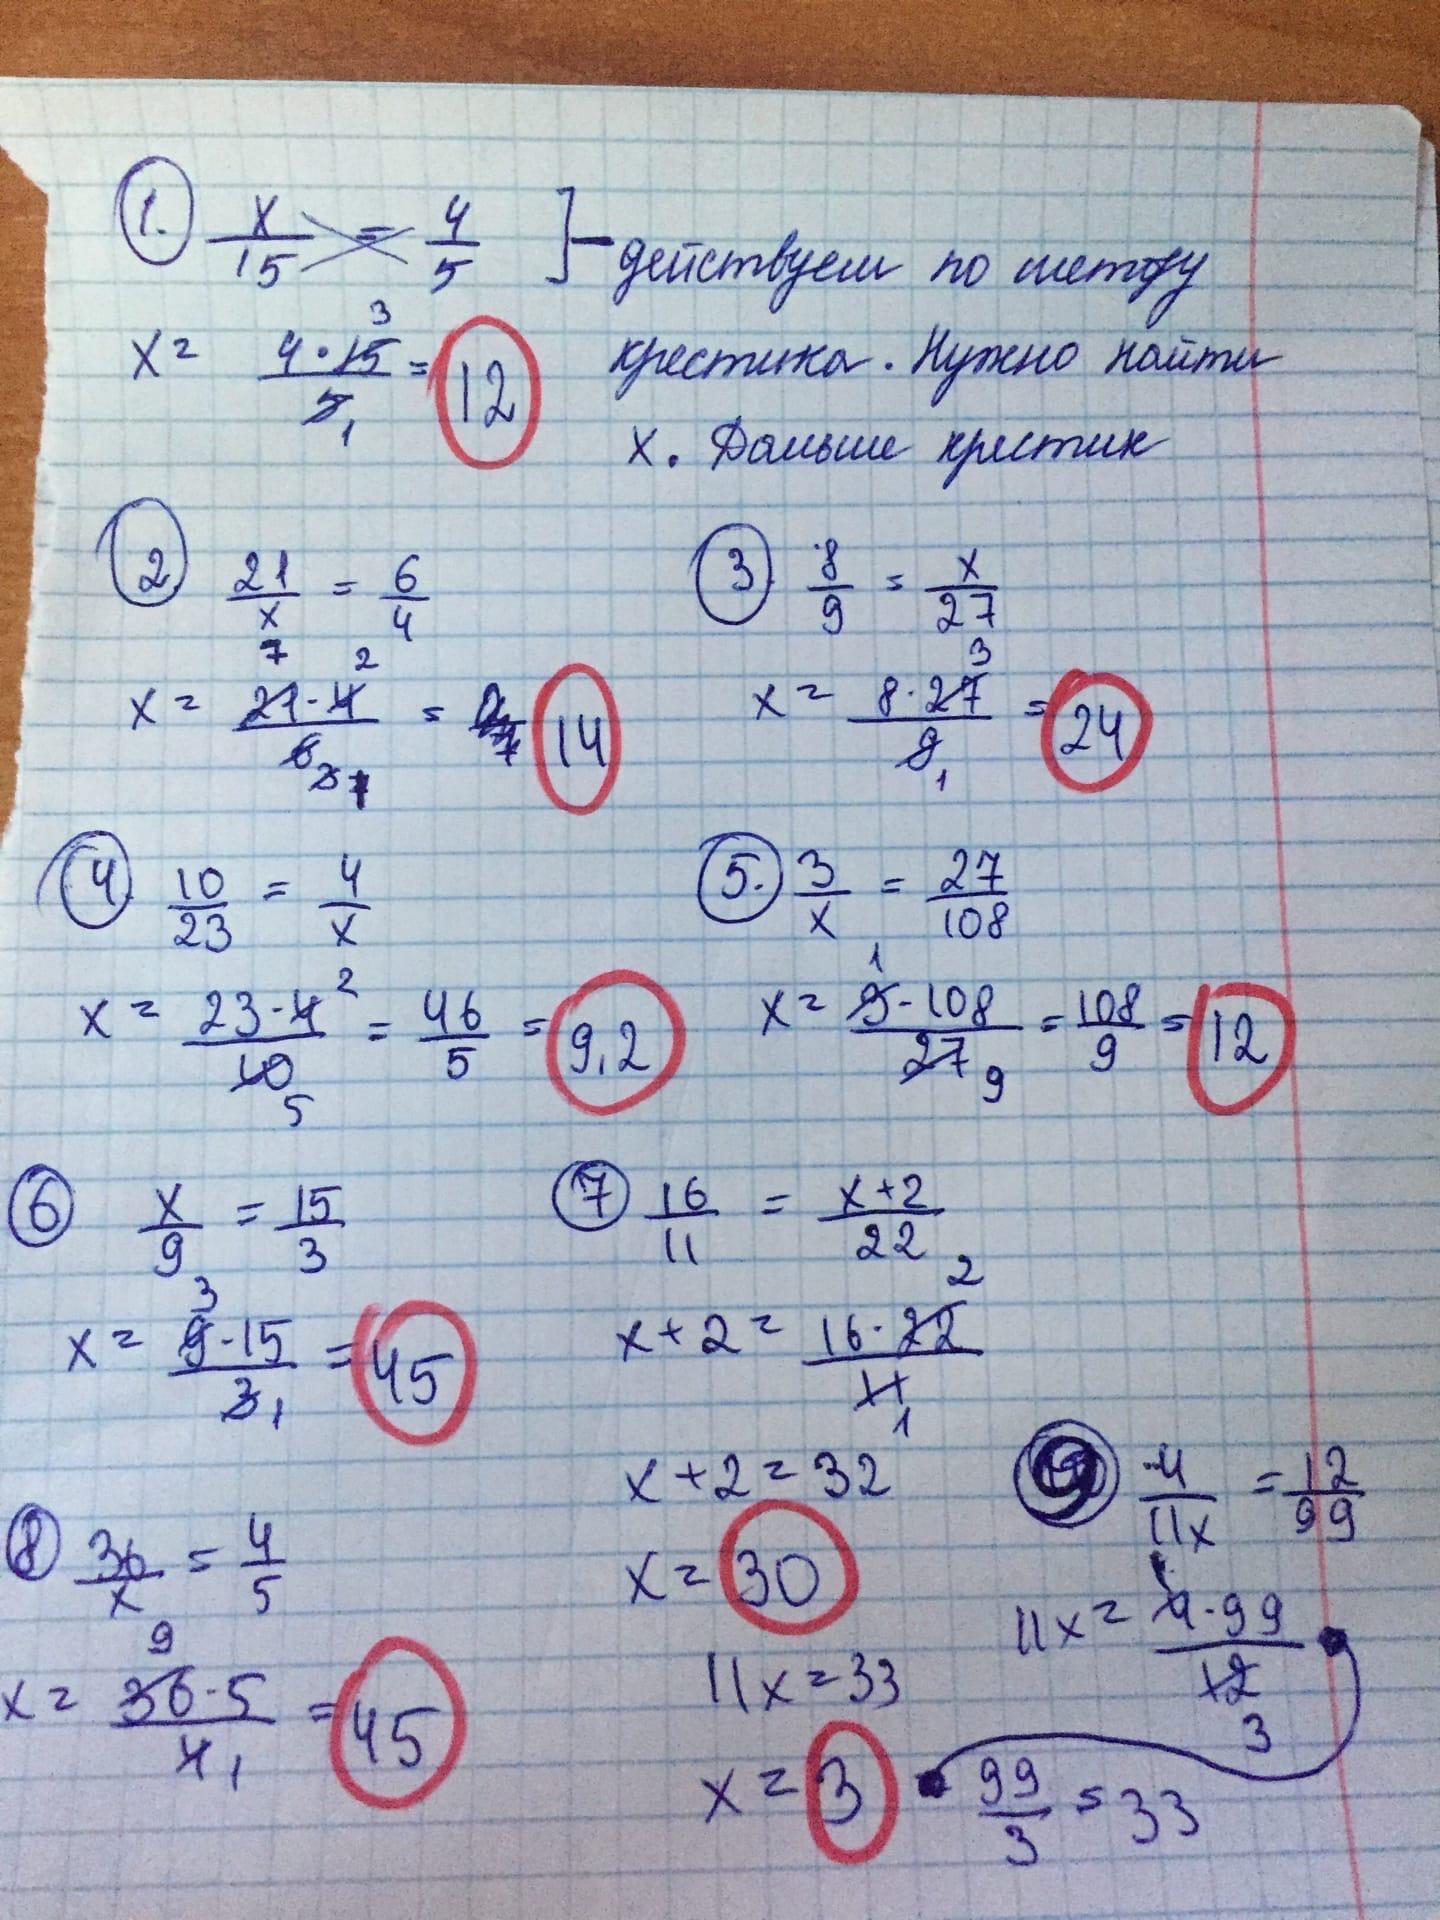 1. x/15 = 4/5 ] - действуем по методу
x = 4·15/5 = 12 крестика. Нужно найти
3
1
x. Дальше крестик
2 21/x = 6/4
7 2
x = 21·4/6 = 14
3 1
3 8/9 = x/27
3
x = 8·27/9 = 24
1
4 10/23 = 4/x
2
x = 23·4/10 = 46/5 = 9,2
5
5. 3/x = 27/108
1
x = 3·108/27 = 108/9 = 12
9
6 x/9 = 15/3
3
x = 9·15/3 = 45
1
7 16/11 = x+2/22
2
x+2 = 16·22/11
1
x+2 = 32
x = 30
8 36/x = 4/5
9
x = 36·5/4 = 45
1
9 4/11x = 12/99
1
11x = 4·99/12
3
99/3 = 33
11x = 33
x = 3